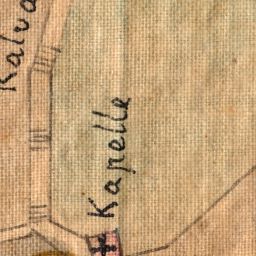 Kalva
Kapelle